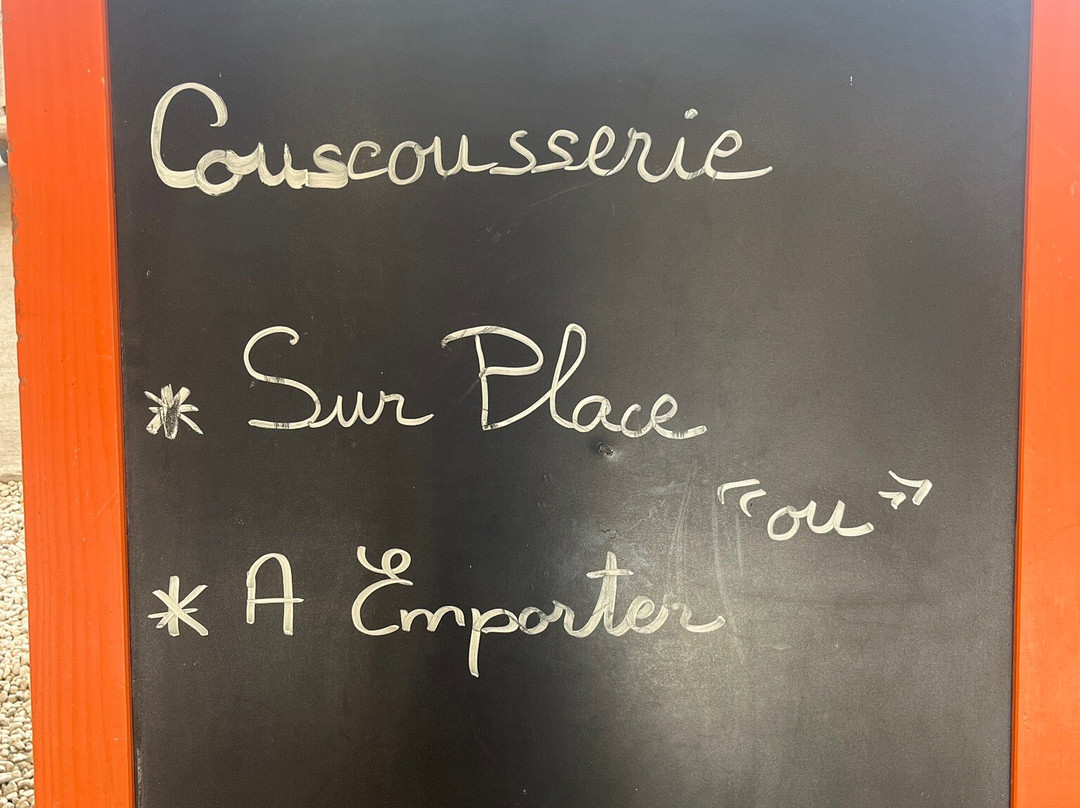 Couscousserie
* Sur Place
"ou"
* A Emporter